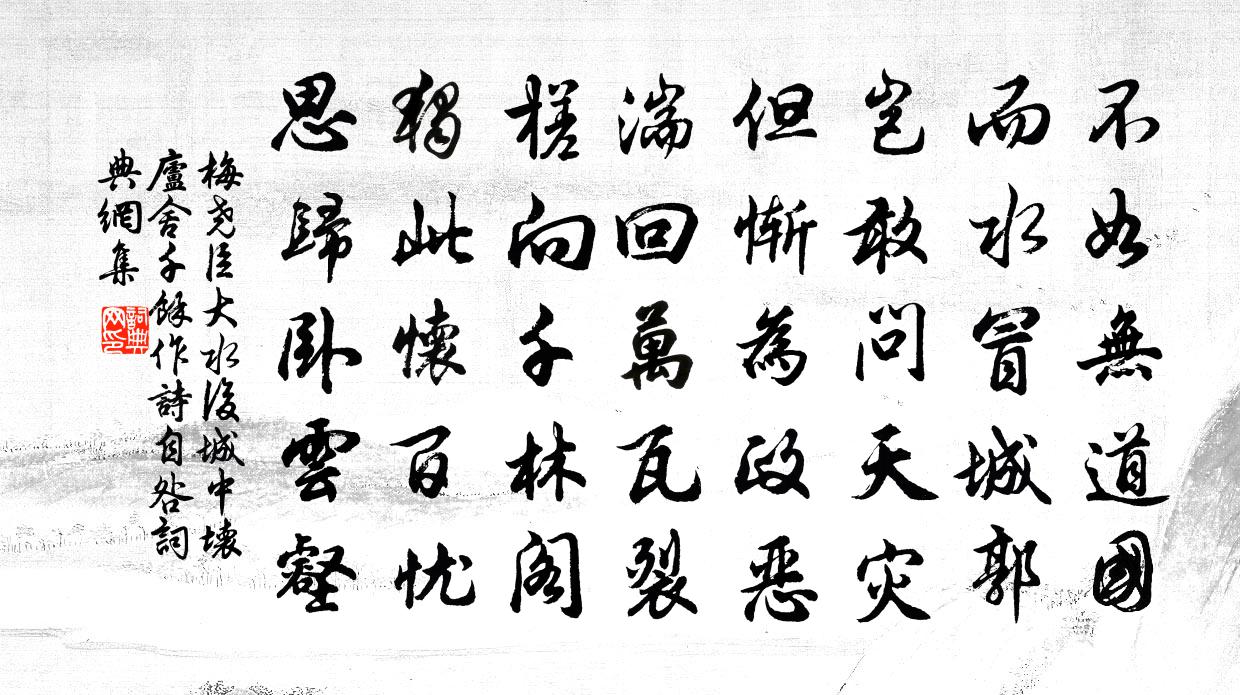 不如無道國
而水冒城郭
豈敢問天灾
但慚為政惡
湍回萬瓦裂
槎向千林閣
獨此懷百忧
思歸卧雲壑
梅堯臣大水後城中壞
廬舍千餘作詩自咎詞
典網集
詞典
网印